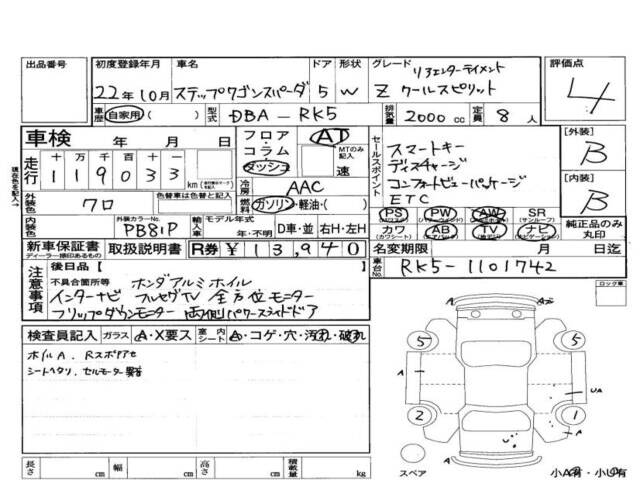 出品番号 初度登録年月 車名 ドア 形状 グレード リアエンターテイメント 評価点
22年10月 ステップワゴンスパーダ 5 W Z クールスピリット 4
車歴 自家用 ( ) 型式 DBA - RK5 排気量 2000 cc 定員 8 人
車検 年 月 日 フロア コラム ダッシュ AT MTのみ記入 速
走行 十 万 千 百 十 一
119033 km
冷房 AAC
セールスポイント スマートキー
ディスチャージ
コンフォートビューパッケージ
ETC
[外装] B
[内装] B
外装色 クロ 色替車は色替前色 燃料 ガソリン・軽油・( )
内装色 外装カラーNo. PB81P 輸入車 モデル年式 年・不明 D車・並 右H・左H
PS PW AW SR
(パワステ) (パワーウィンドウ) (サンルーフ)
カワ AB TV ナビ
(カワシート) (エアバッグ)
純正品のみ丸印
新車保証書 取扱説明書 R券 ¥13,940 名変期限 月 日迄
ディーラー捺印あるもの
車台No. RK5-1101742
現在色を記入→
注意事項 後日品 [ ]
不具合箇所等 ホンダアルミホイル
インターナビ フルセグTV 全方位モニター
フリップダウンモニター 両側パワースライドドア
ロック車
検査員記入 ガラス A・X要ス 室内シート A・コゲ・穴・汚れ・破れ
ホイルA、Rスポアセ
シートヘタリ、セルモーター異音
A A2
5 5
A A UA
2 1
U A
A
スペア 小A有・小U有
長さ cm 幅 cm 高さ cm 積載量 kg